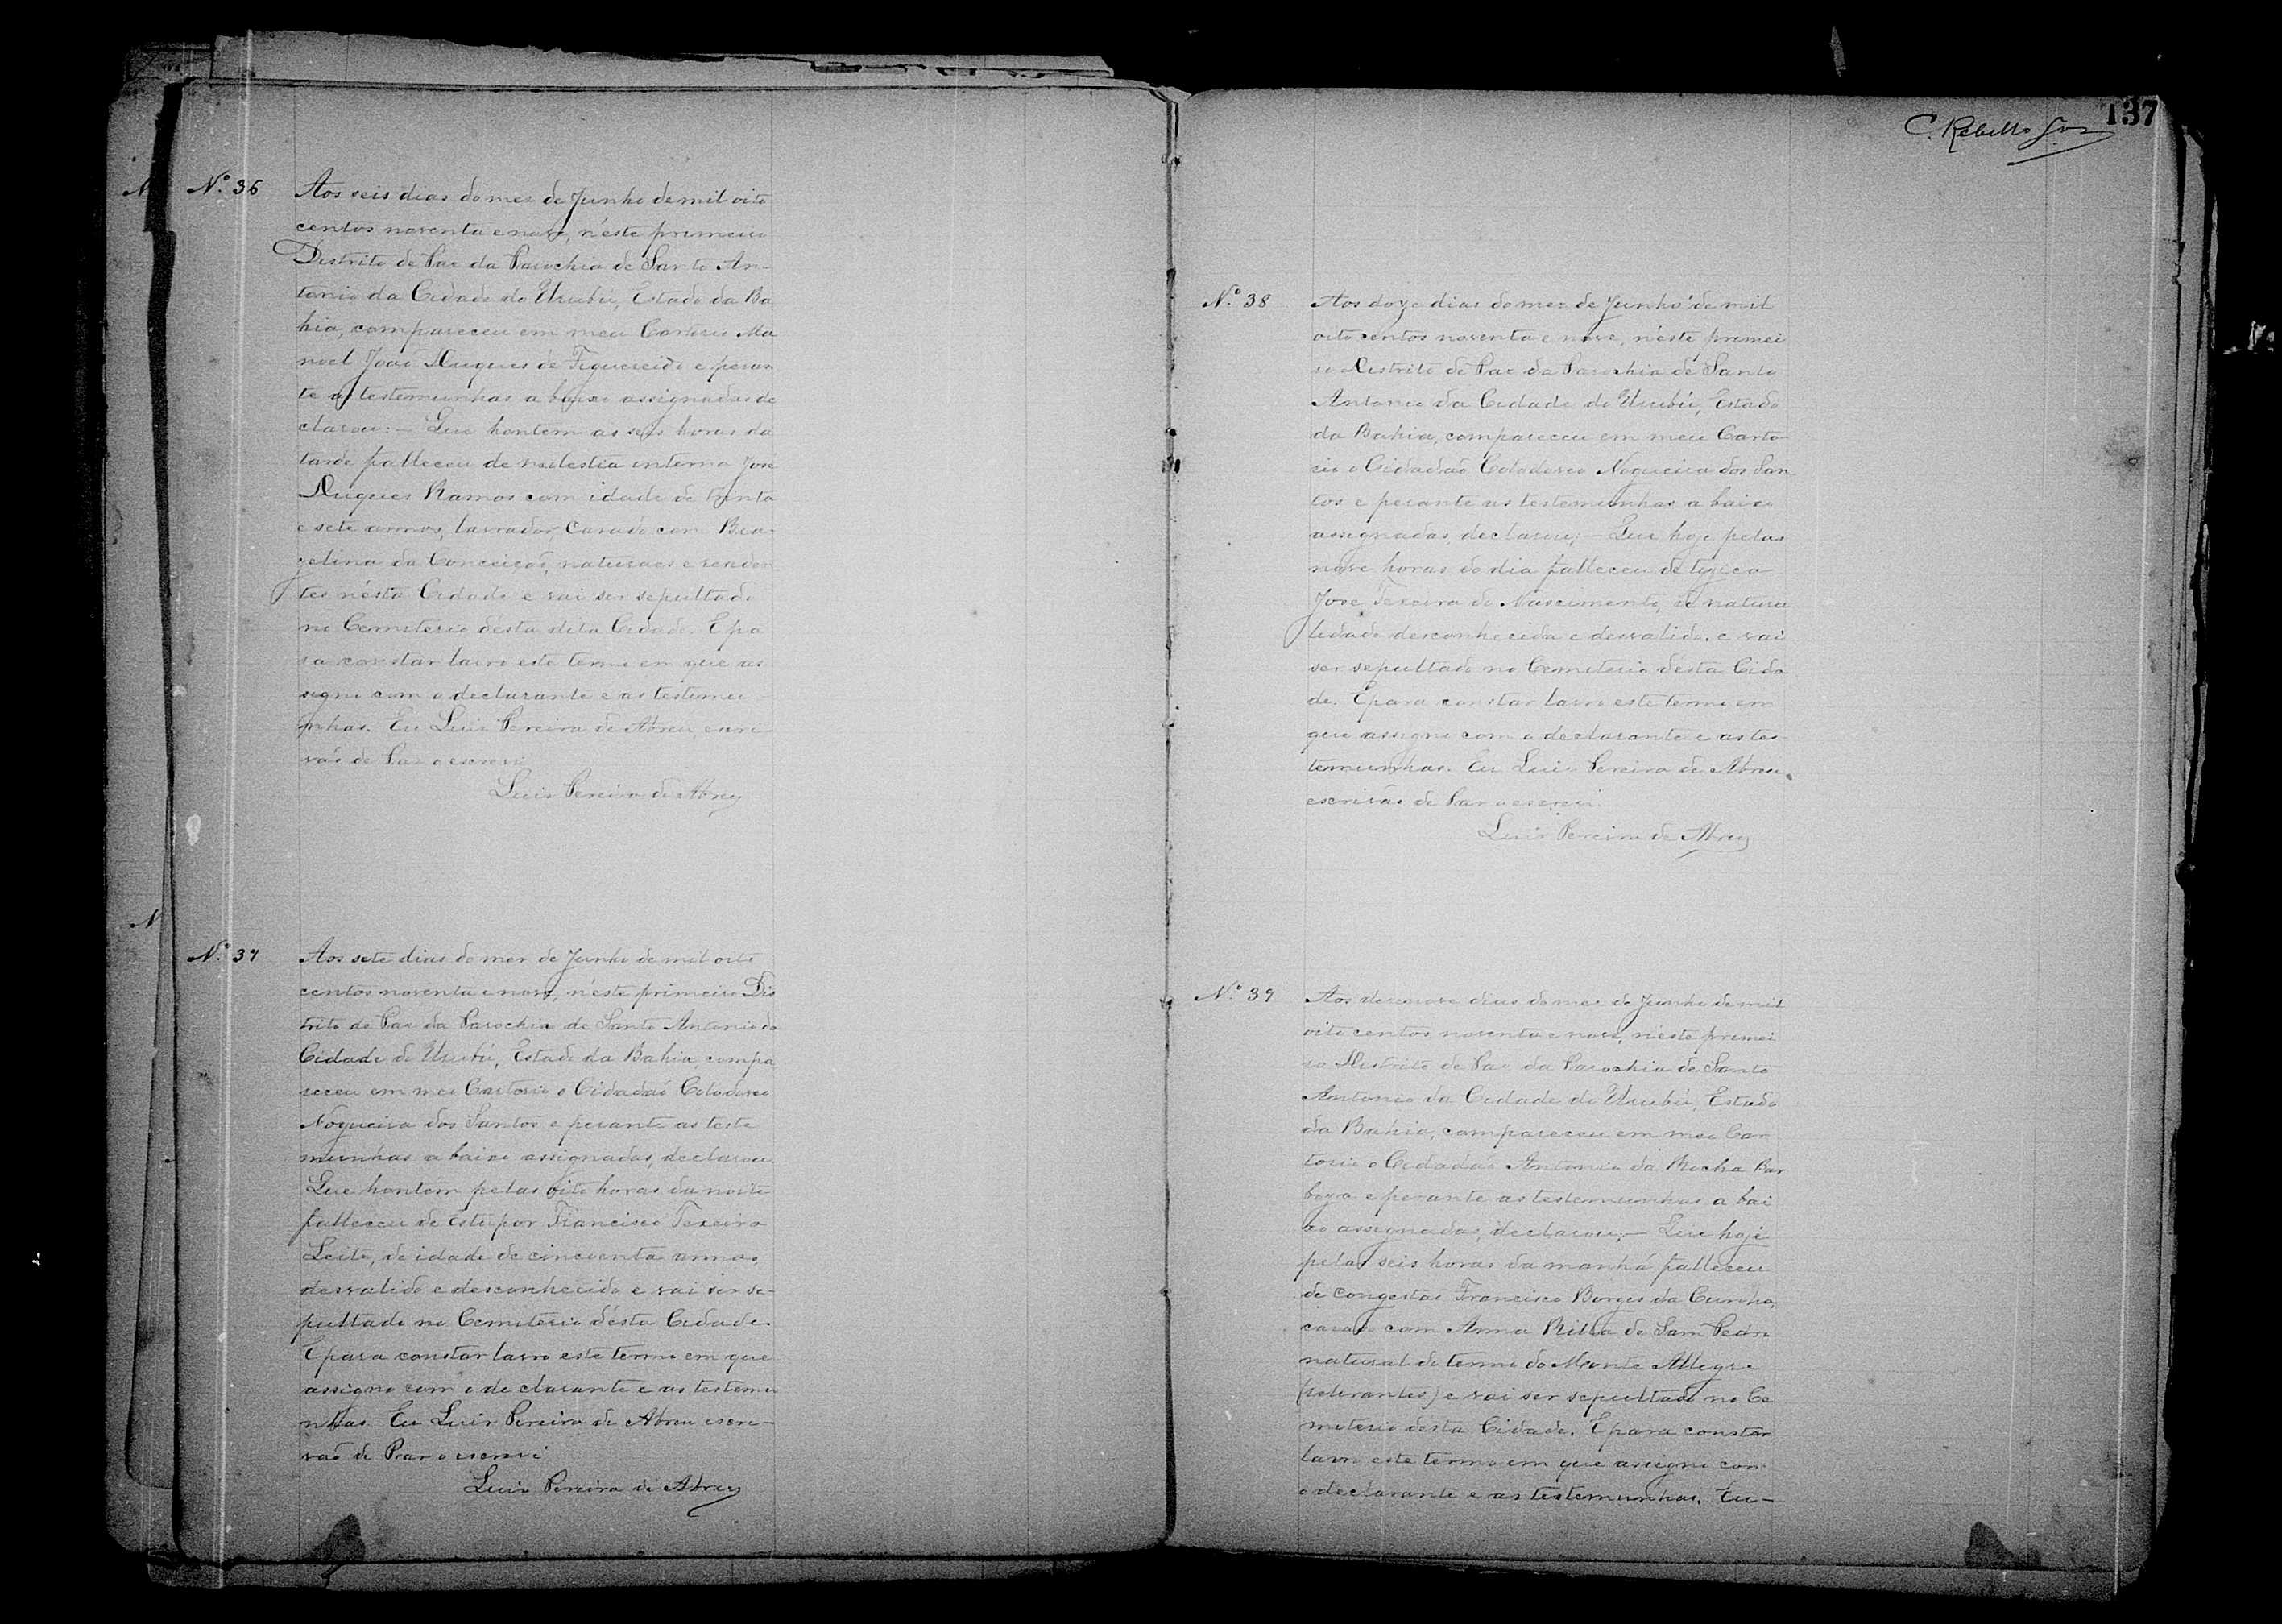 Nº 36
Aos seis dias do mez de Junho de mil oito
centos noventa e nove, n'éste primeiro
Distrito de Paz da Parochia de Santo An-
tonio da Cidade do Urubú, Estado da Ba
hia, compareceu em meu Cartorio Ma
noel João Duques de Figueredo e peran
te as testemunhas a baixo assignadas de
clarou:- Que hontem as seis horas da
tarde falleceu de molestia interna Jose
Duques Ramos com idade de trinta
e sete annos, lavrador, Casado com
da Conceição, naturaes e residen
tes nésta Cidade e vai ser sepultado
no Cemiterio désta dita Cidade. E pa
ra constar lavro este termo em que as
signo com o declarante e as testemu
nhas. Eu Luis Pereira de Abreu, escri
vão de Paz o escrevi
Luis Pereira de Abreu
Nº 37
Aos sete dias do mez de Junho de mil oito
centos noventa e nove, n'éste primeiro Dis
trito de Paz da Parochia de Santo Antonio da
Cidade do Urubú, Estado da Bahia, compa
receu em meu Cartorio o Cidadaõ Colodoveo
Nogueira dos Santos e perante as teste
munhas a baixo assignadas, declarou
Que hontem pelas oito horas da noite
falleceu de Estupor Francisco Texeira
Leite, de idade de cincoenta annos,
desvalido e desconhecido e vai ser se-
pultado no Cemiterio désta Cidade.
E para constar lavro este termo em que
assigno com o declarante e as testemu
nhas. Eu Luis Pereira de Abreu escri-
vaõ de Paz o escrevi
Luis Pereira de Abreu
137
C. Rebello
N.º 38
Aos doze dias do mez de Junho de mil
oito centos noventa e nove, n'éste primei
ro Distrito de Paz da Parochia de Santo
Antonio da Cidade do Urubú, Estado
da Bahia, compareceu em meu Carto
rio o Cidadaõ Colodoveo Nogueira dos San
tos e perante as testemunhas a baixo
assignadas, declarou:- Que hoje pelas
nove horas do dia falleceu de
Jose Texeira do Nascimento, de natura
lidade desconhecida e desvalido, e vai
ser sepultado no Cemiterio desta Cida
de. E para constar lavro este termo em
que assigno com o declarante e as tes-
temunhas. Eu Luis Pereira de Abreu,
escrivão de Paz o escrevi
Luis Pereira de Abreu
N.º 39
Aos dezenove dias do mez de Junho de mil
oito centos noventa e nove, n'éste primei
ro Distrito de Paz da Parochia de Santo
Antonio da Cidade do Urubú, Estado
da Bahia, compareceu em meu Car
torio o Cidadão Antonio da Rocha Bar
boza e perante as testemunhas a bai
xo assignadas, declarou:- Que hoje
pelas seis horas da manhã falleceu
de congestas Francisco Borges da Cunha,
casado com Anna Ritta de Sam Pedro
natural do termo do Monte Allegre
(retirantes) e vai ser sepultado no Ce
miterio desta Cidade. E para constar
lavro este termo em que assigno com
o declarante e as testemunhas. Eu-